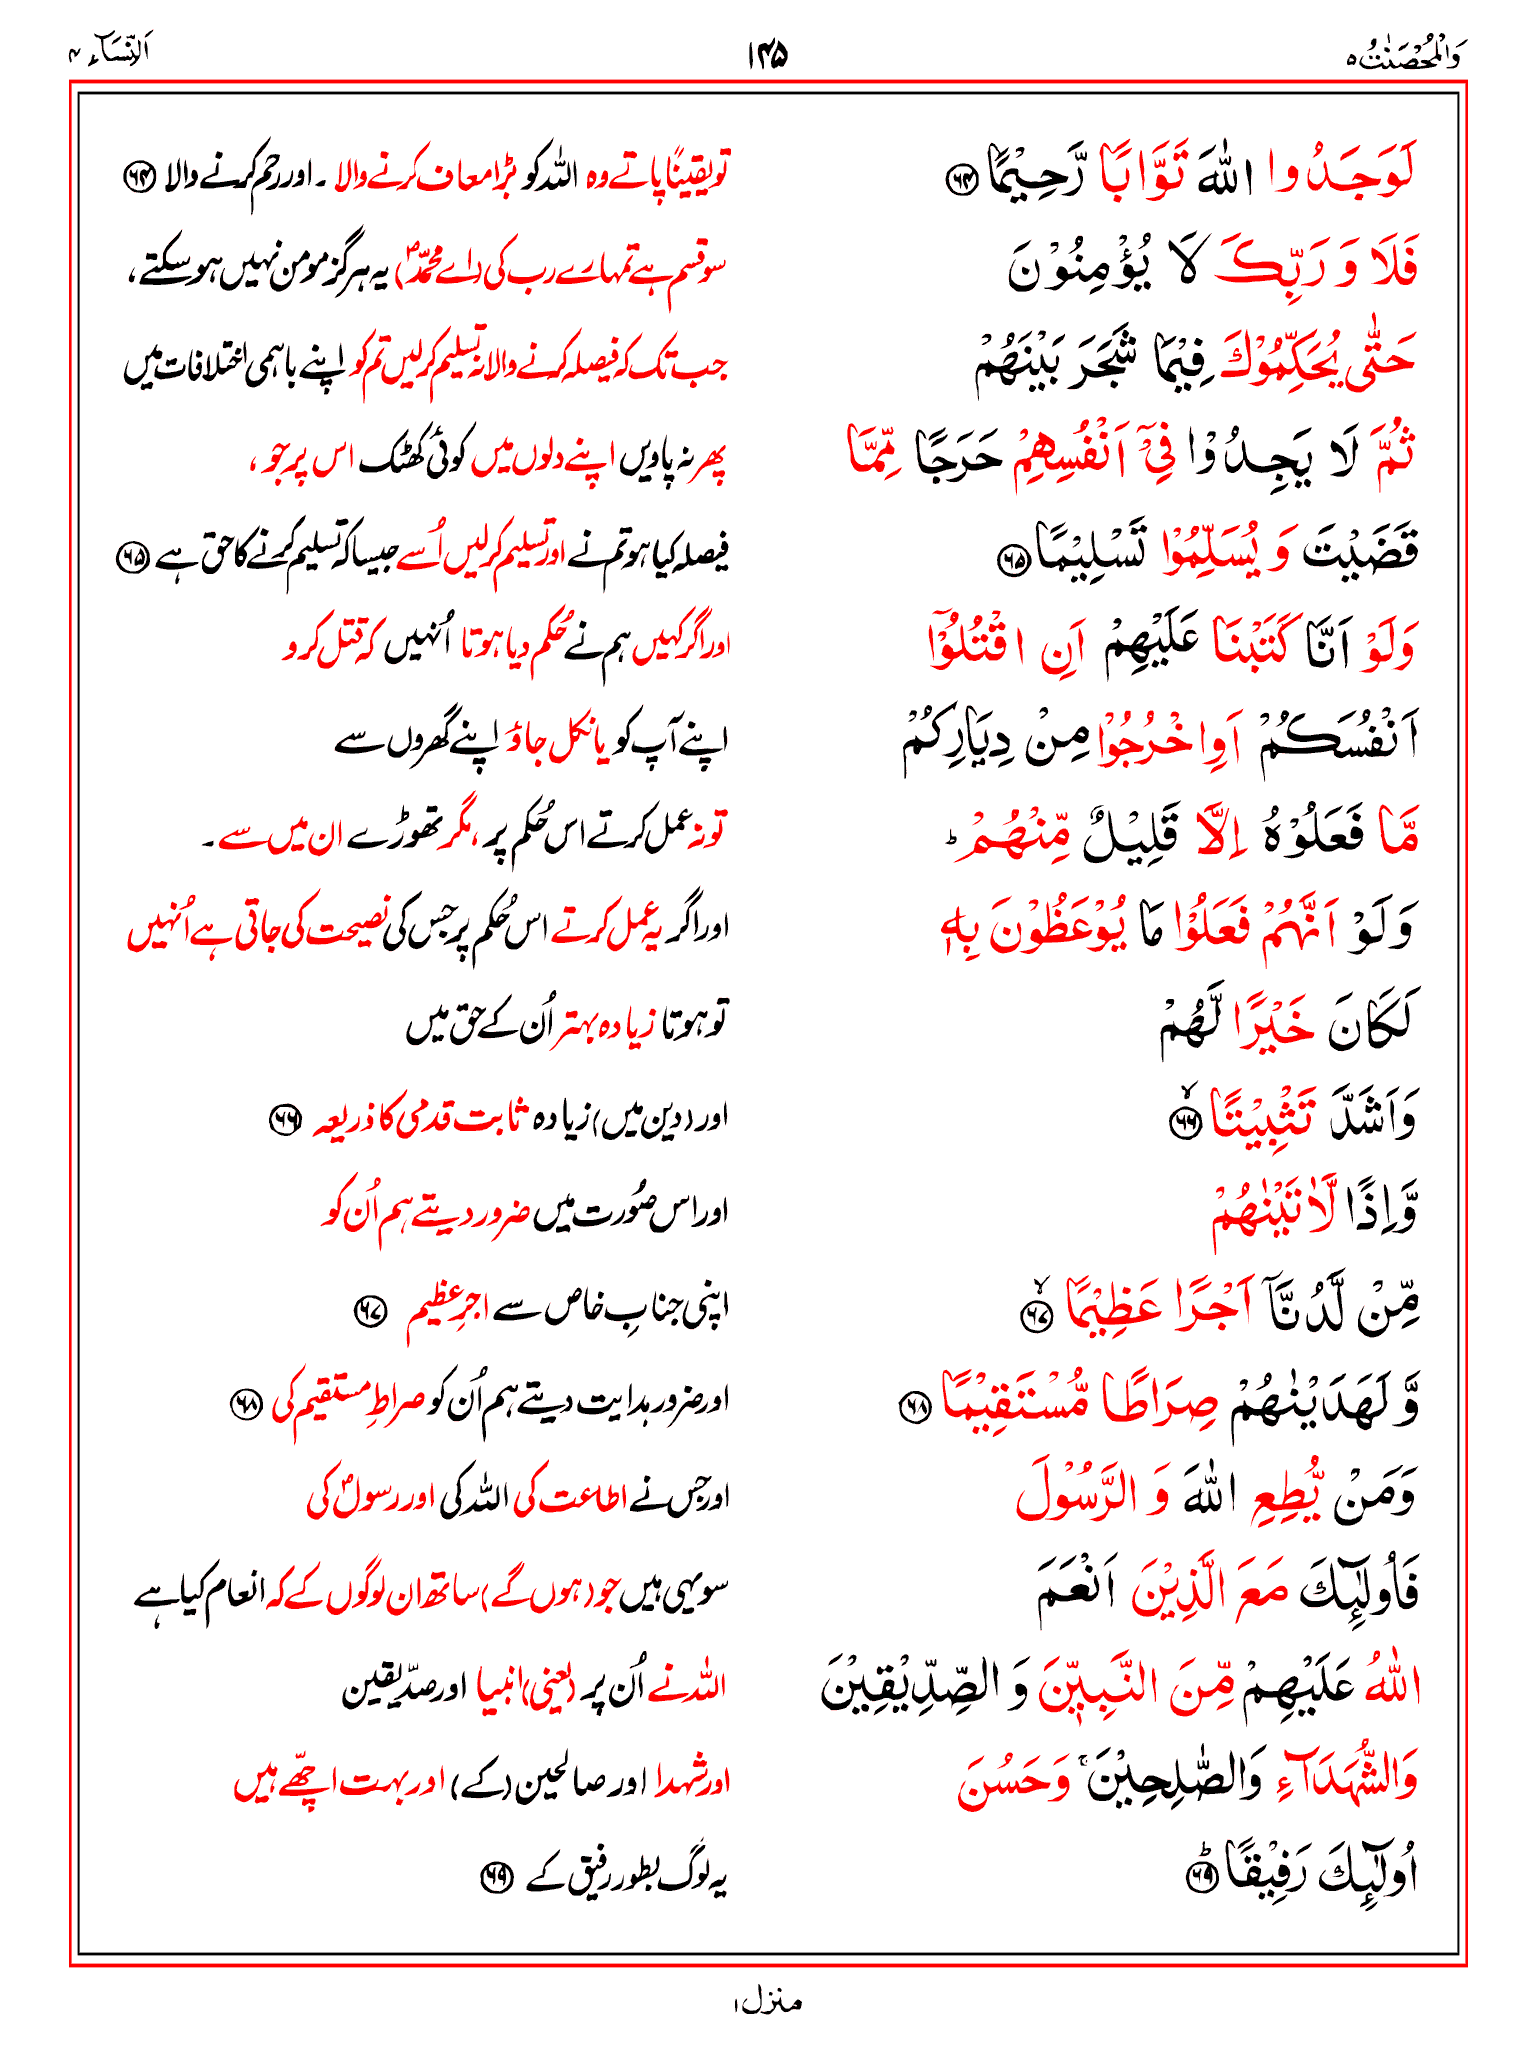 وَالْمُحْصَنٰتُ ۵
۱۴۵
اَلنِّسَآء ۴
لَوَجَدُوا اللّٰهَ تَوَّابًا رَّحِیْمًا ﴿۶۴﴾
تو یقیناً پاتے وہ اللہ کو بڑا معاف کرنے والا ۔ اور رحم کرنے والا ﴿۶۴﴾
فَلَا وَ رَبِّكَ لَا یُؤْمِنُوْنَ
سو قسم ہے تمہارے رب کی (اے محمّدؐ) یہ ہرگز مومن نہیں ہو سکتے،
حَتّٰی یُحَكِّمُوْكَ فِیْمَا شَجَرَ بَیْنَهُمْ
جب تک کہ فیصلہ کرنے والا نہ تسلیم کرلیں تم کو اپنے باہمی اختلافات میں
ثُمَّ لَا یَجِدُوْا فِیْۤ اَنْفُسِهِمْ حَرَجًا مِّمَّا
پھر نہ پاویں اپنے دلوں میں کوئی کھٹک اس پر جو ،
قَضَیْتَ وَ یُسَلِّمُوْا تَسْلِیْمًا ﴿۶۵﴾
فیصلہ کیا ہو تم نے اور تسلیم کرلیں اُسے جیسا کہ تسلیم کرنے کا حق ہے ﴿۶۵﴾
وَلَوْ اَنَّا كَتَبْنَا عَلَیْهِمْ اَنِ اقْتُلُوْۤا
اور اگر کہیں ہم نے حُکم دیا ہوتا اُنہیں کہ قتل کرو
اَنْفُسَكُمْ اَوِ اخْرُجُوْا مِنْ دِیَارِكُمْ
اپنے آپ کو یا نکل جاؤ اپنے گھروں سے
مَّا فَعَلُوْهُ اِلَّا قَلِیْلٌ مِّنْهُمْ ؕ
تو نہ عمل کرتے اس حُکم پر ، مگر تھوڑے ان میں سے ۔
وَلَوْ اَنَّهُمْ فَعَلُوْا مَا یُوْعَظُوْنَ بِهٖ
اور اگر یہ عمل کرتے اس حُکم پر جس کی نصیحت کی جاتی ہے اُنہیں
لَكَانَ خَیْرًا لَّهُمْ
تو ہوتا زیادہ بہتر اُن کے حق میں
وَاَشَدَّ تَثْبِیْتًا ﴿۶۶﴾ۙ
اور (دین میں) زیادہ ثابت قدمی کا ذریعہ ﴿۶۶﴾
وَّاِذًا لَّاٰتَیْنٰهُمْ
اور اس صُورت میں ضرور دیتے ہم اُن کو
مِّنْ لَّدُنَّاۤ اَجْرًا عَظِیْمًا ﴿۶۷﴾ۙ
اپنی جنابِ خاص سے اجرِ عظیم ﴿۶۷﴾
وَّ لَهَدَیْنٰهُمْ صِرَاطًا مُّسْتَقِیْمًا ﴿۶۸﴾
اور ضرور ہدایت دیتے ہم اُن کو صراطِ مستقیم کی ﴿۶۸﴾
وَمَنْ یُّطِعِ اللّٰهَ وَ الرَّسُوْلَ
اور جس نے اطاعت کی اللہ کی اور رسولؐ کی
فَاُولٰٓئِكَ مَعَ الَّذِیْنَ اَنْعَمَ
سو یہی ہیں جو (ہوں گے) ساتھ ان لوگوں کے کہ انعام کیا ہے
اللّٰهُ عَلَیْهِمْ مِّنَ النَّبِیّٖنَ وَ الصِّدِّیْقِیْنَ
اللہ نے اُن پر (یعنی) انبیا اور صدّیقین
وَالشُّهَدَآءِ وَالصّٰلِحِیْنَ ۚ وَحَسُنَ
اور شہدا اور صالحین (کے) اور بہت اچّھے ہیں
اُولٰٓئِكَ رَفِیْقًا ﴿۶۹﴾ؕ
یہ لوگ بطور رفیق کے ﴿۶۹﴾
منزل ۱